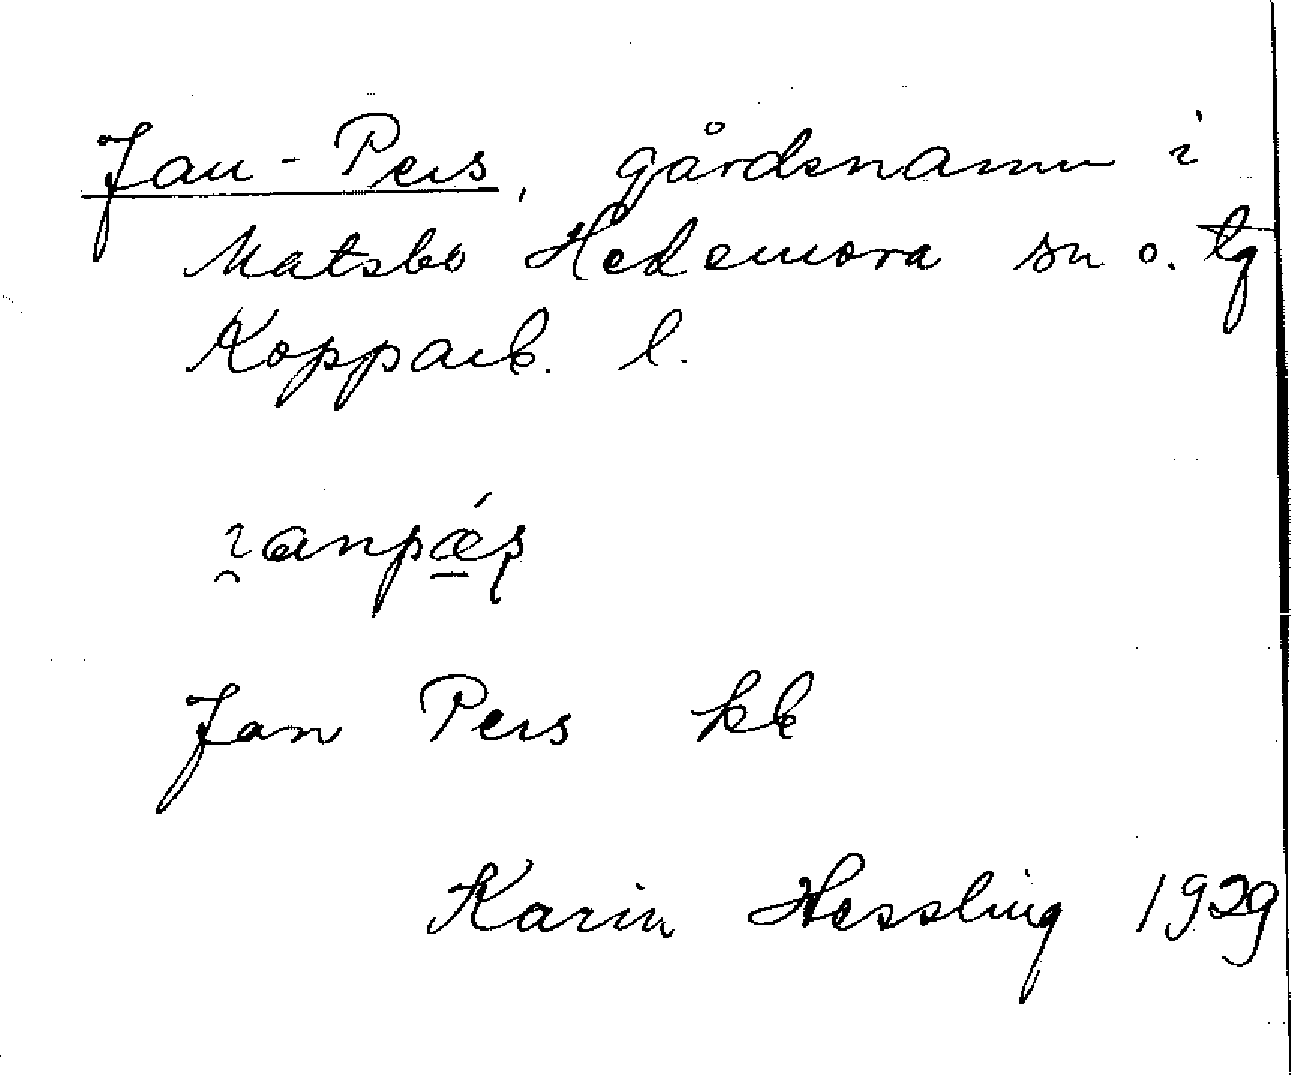 Jan-Pers, gårdsnamn i
Matsbo Hedemora sn o. tg
Kopparb. l.
i̯anpǽ̠ş
Jan Pers kb
Karin Hessling 1929